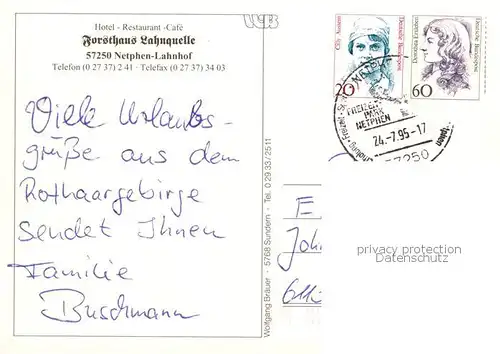 Hotel - Restaurant - Café
Forsthaus Lahnquelle
57250 Netphen-Lahnhof
Telefon (0 27 37) 2 41 - Telefax (0 27 37) 34 03
Viele Urlaubs-
grüße aus dem
Rothaargebirge
sendet Ihnen
Familie
Buschmann
Wolfgang Bräuer - 5768 Sundern - Tel. 0 29 33 / 25 11
Cilly Aussem
Deutsche Bundespost
20
Dorothea Erxleben
Deutsche Bundespost
60
FREIZEIT
PARK
NETPHEN
24.-7.95-17
57250
E
Joh
privacy protection
www.ansichtskartenversand.com